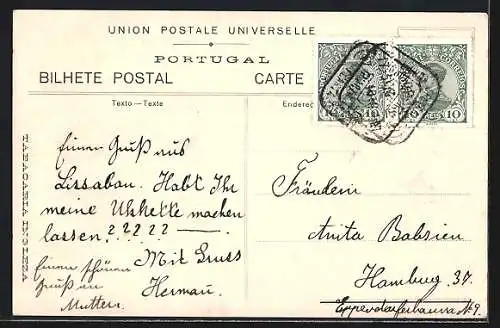 UNION POSTALE UNIVERSELLE
PORTUGAL
BILHETE POSTAL CARTE
Texto—Texte Endereç
TABACARIA INGLEZA
CORREIOS
10 10
Einen Gruß aus
Lissabon. Habt Ihr
meine Uhrkette machen
lassen? ? ? ? ?
Mit Gruss
Herman.
Einen schönen
Gruß an
Muttern.
Fräulein
Anita
Hamburg 37.